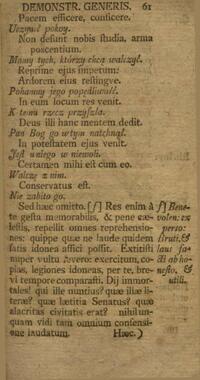 DEMONSTR. GENERIS. 61
Pacem efficere, conficere.
Uczynić pokoy.
Non desunt nobis studia, arma
poscentium.
Mamy tych, którzy chcą walczyć.
Reprime ejus impetum:
Ardorem ejus restingve.
Pohamuy jego popędliwość.
In eum locum res venit.
K temu rzecz przyszła.
Deus illi hanc mentem dedit.
Pan Bog go w tym natchnął.
In potestatem ejus venit.
Jest u niego w niewoli.
Certamen mihi est cum eo.
Walczę z nim.
Conservatus est.
Nie zabito go.
Sed hæc omitto. [f] Res enim à f) Bene-
te gesta memorabilis, & pene cæ- volen: ex
lestis, repellit omnes reprehensio- perso:
nes: quippe quæ ne laude quidem
satis idonea affici possit. Extitisti laus fa-
nuper vultu severo: exercitum, co- cti ab ho-
pias, legiones idoneas, per te, bre- nesto, &
vi tempore comparasti. Dij immor- utili.
tales! qui ille nuntius? quæ illæ li-
teræ? quæ lætitia Senatus? quæ
alacritas civitatis erat? nihil un-
quam vidi tam omnium consensi-
one laudatum. Hæc )